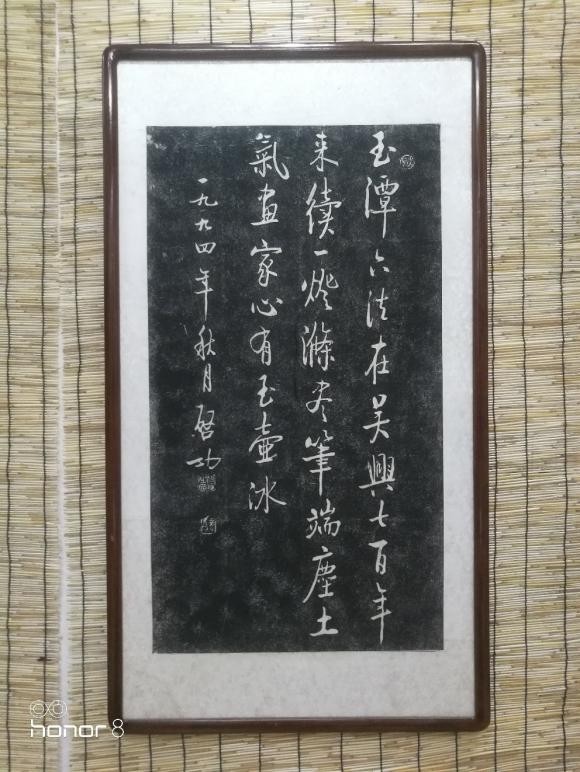 玉潭六法在吴興七百年
来續一燈滌盡筆端塵土
氣畫家心有玉壷冰
一九九四年秋月啓功
honor 8